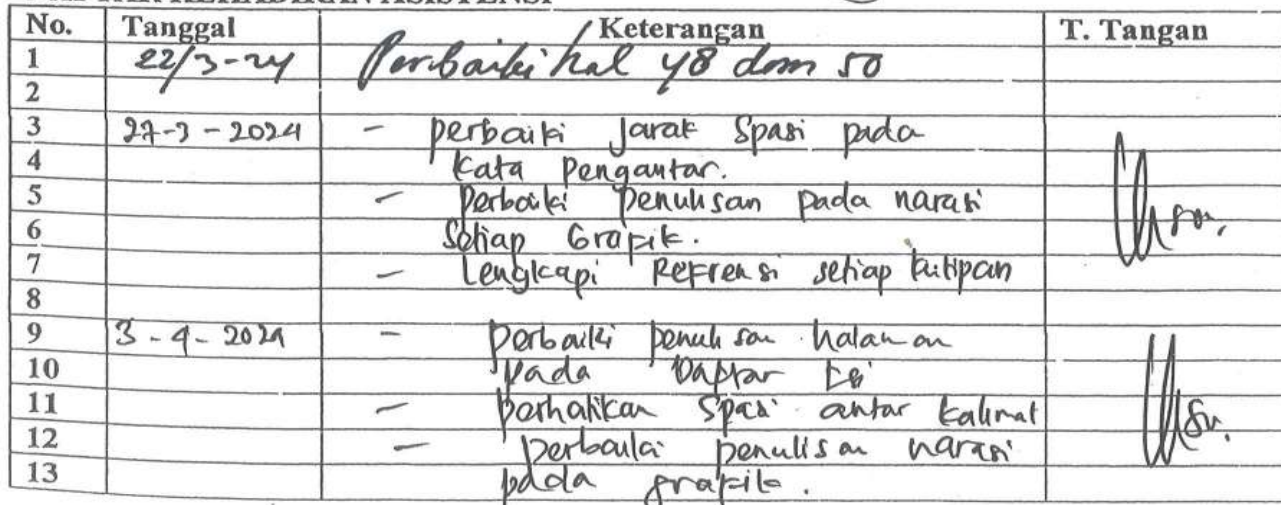 No. Tanggal Keterangan T. Tangan
1 22/3-24 Perbaiki hal 48 dan 50
2
3 27-3-2024 - perbaiki Jarak Spasi pada
4 Kata Pengantar.
5 - Perbaiki Penulisan pada narasi
6 Setiap Grafik.
7 - Lengkapi Refrensi setiap kutipan
8
9 3-4-2024 - perbaiki penulisan halaman
10 pada Daftar Isi
11 - perhatikan Spasi antar kalimat
12 - perbaiki penulisan narasi
13 pada grafik.